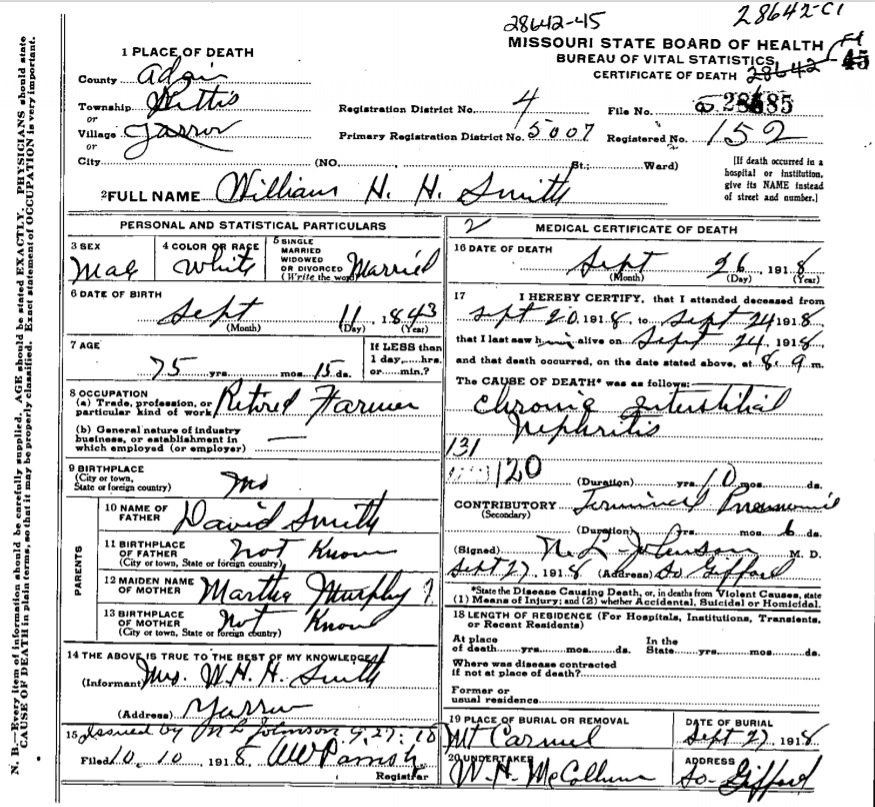 28642-45
28642-C1
MISSOURI STATE BOARD OF HEALTH
BUREAU OF VITAL STATISTICS
CERTIFICATE OF DEATH
28642
45
1 PLACE OF DEATH
County Adair
Township Pettis
or
Village Yarrow
or
City (NO. St.; Ward)
Registration District No. 4
File No.
Primary Registration District No. 5007
Registered No. 152
[If death occurred in a
hospital or institution,
give its NAME instead
of street and number.]
2 FULL NAME William H. H. Smith
PERSONAL AND STATISTICAL PARTICULARS
3 SEX
Male
4 COLOR OR RACE
White
5 SINGLE
MARRIED
WIDOWED
OR DIVORCED
(Write the word)
Married
6 DATE OF BIRTH
Sept 11, 1843
(Month) (Day) (Year)
7 AGE
75 yrs. mos. 15 ds.
If LESS than
1 day,....hrs.
or....min.?
8 OCCUPATION
(a) Trade, profession, or
particular kind of work Retired Farmer
(b) General nature of industry
business, or establishment in
which employed (or employer) —
9 BIRTHPLACE
(City or town,
State or foreign country)
Mo
PARENTS
10 NAME OF
FATHER David Smith
11 BIRTHPLACE
OF FATHER Not Know
(City or town, State or foreign country)
12 MAIDEN NAME
OF MOTHER Martha Murphy ?
13 BIRTHPLACE
OF MOTHER Not Know
(City or town, State or foreign country)
14 THE ABOVE IS TRUE TO THE BEST OF MY KNOWLEDGE
(Informant) Mrs. W. H. H. Smith
(Address) Yarrow
15 Issued by N L Johnson 9-27-18
Filed 10-10, 1918 WW Parrish
Registrar
2
MEDICAL CERTIFICATE OF DEATH
16 DATE OF DEATH
Sept 26, 1918
(Month) (Day) (Year)
17 I HEREBY CERTIFY, that I attended deceased from
Sept 20, 1918, to Sept 24 1918
that I last saw him alive on Sept 24, 1918,
and that death occurred, on the date stated above, at 8. 9 m.
The CAUSE OF DEATH* was as follows:
Chronic Interstitial
Nephritis
131
120
(Duration) yrs. 10 mos. ds.
CONTRIBUTORY Terminal Pneumonia
(Secondary)
(Duration) yrs. mos. 6 ds.
(Signed) N. L. Johnson M. D.
Sept 27, 1918 (Address) So Gifford
*State the Disease Causing Death, or, in deaths from Violent Causes, state
(1) Means of Injury; and (2) whether Accidental, Suicidal or Homicidal.
18 LENGTH OF RESIDENCE (For Hospitals, Institutions, Transients,
or Recent Residents)
At place
of death....yrs....mos....ds.
In the
State....yrs....mos....ds.
Where was disease contracted
if not at place of death?
Former or
usual residence
19 PLACE OF BURIAL OR REMOVAL
Mt Carmel
DATE OF BURIAL
Sept 27 1918
20 UNDERTAKER
W. H. McCollum
ADDRESS
So-Gifford
N. B.—Every item of information should be carefully supplied. AGE should be stated EXACTLY. PHYSICIANS should state
CAUSE OF DEATH in plain terms, so that it may be properly classified. Exact statement of OCCUPATION is very important.